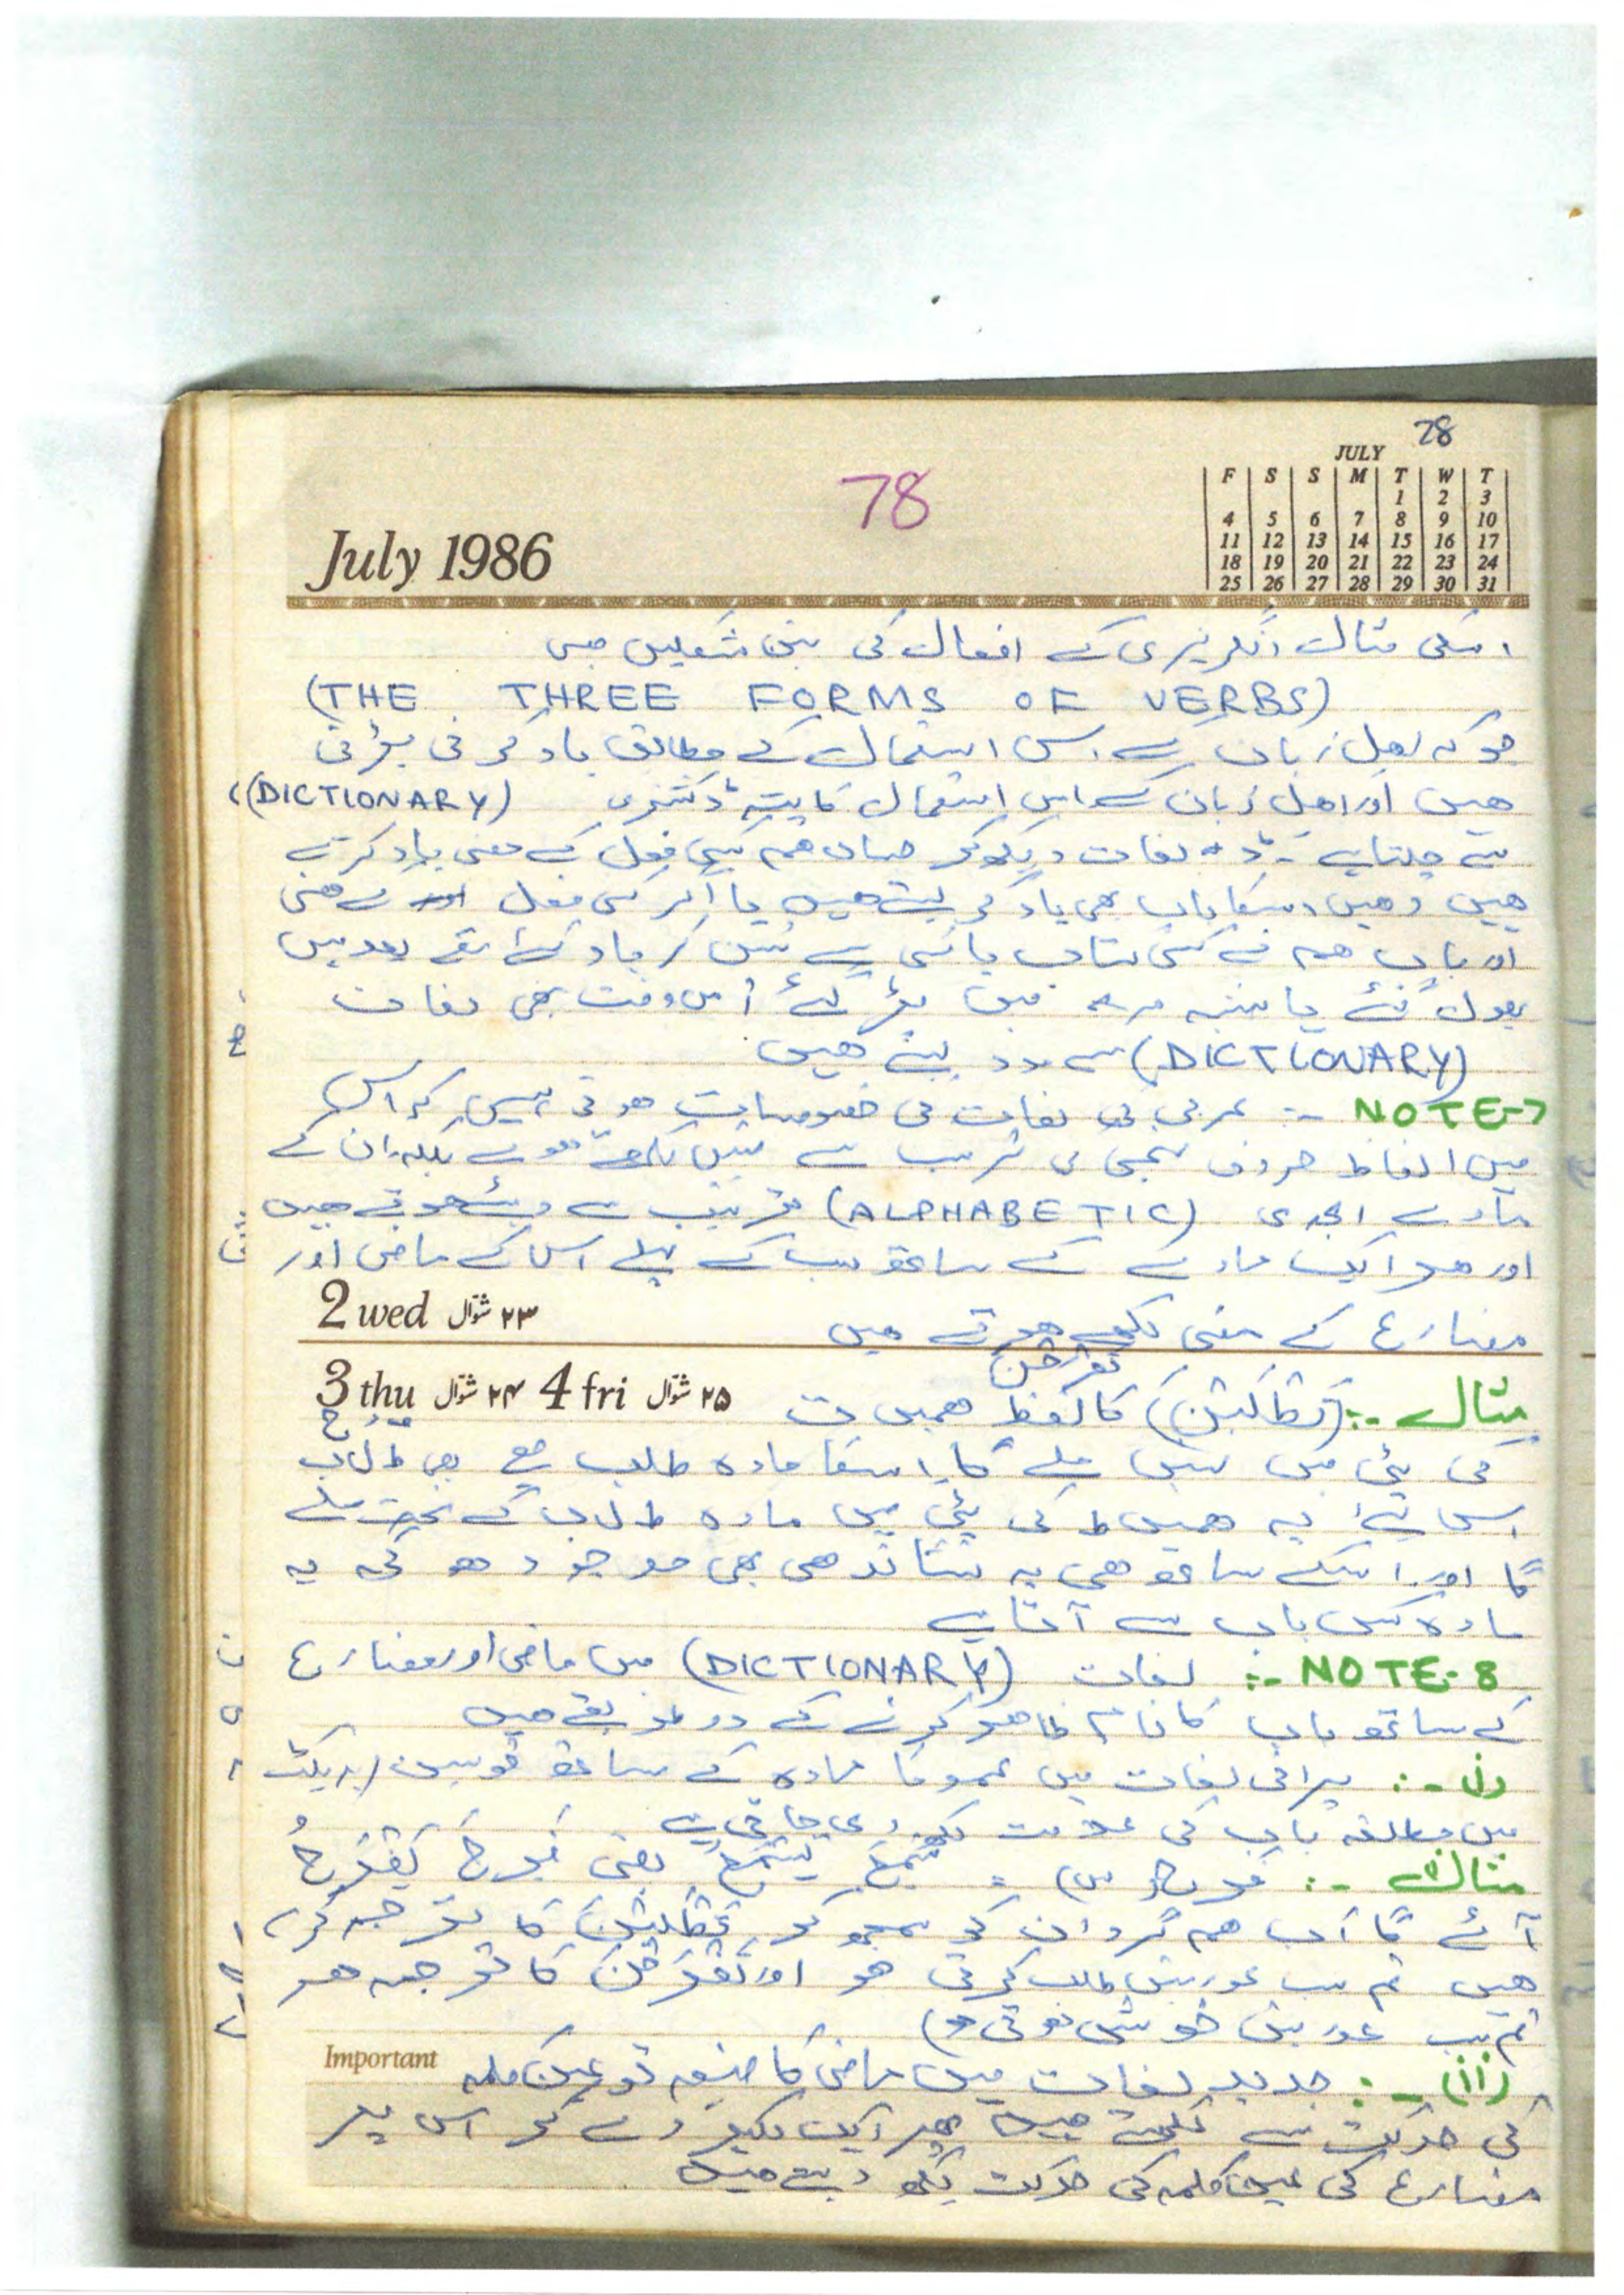 78
JULY
F S S M T W T
1 2 3
4 5 6 7 8 9 10
11 12 13 14 15 16 17
18 19 20 21 22 23 24
25 26 27 28 29 30 31
78
July 1986
اسکی مثال انگریزی کے افعال کی تین شکلیں ہیں
(THE THREE FORMS OF VERBS)
جو کہ اہل زبان کے اس استعمال کے مطابق یاد کرنی پڑتی
ھیں اور اھل زبان کے اس استعمال کا پتہ ڈکشنری (DICTIONARY)
سے چلتا ہے۔ لغات دیکھکر جہاں ھم کسی فعل کے معنی یاد کرتے
ھیں وھیں اسکا باب بھی یاد کر لیتے ھیں یا اگر کسی فعل کے معنی
اور باب ھم نے کسی کتاب یا کسی سے سن کر یاد کئے تھے بعد میں
بھول گئے یا شبہ میں پڑ گئے اس وقت بھی لغات
(DICTIONARY) سے مدد لیتے ھیں
NOTE-7 :- عربی کی لغات کی خصوصیات ھوتی ہیں کہ اس
میں الفاظ حروف تہجی کی ترتیب سے نہیں لکھے ھوتے بلکہ ان کے
مادے ابجدی (ALPHABETIC) ترتیب سے دیئے ھوتے ھیں
اور ھر ایک مادے کے ساتھ سب کے پہلے اس کے ماضی اور
2 wed ۲۳ شوّال
مضارع کے معنی لکھے ھوتے ھیں
3 thu ۲۴ شوّال 4 fri ۲۵ شوّال
تفرحن
مثال :- (تَطْلُبْنَ) کا لفظ ھمیں ت
کی پٹی میں نہیں ملے گا اسکا مادہ طلب ہے یعنی ط ل ب
اس لئے یہ ھمیں ط کی پٹی میں مادہ ط ل ب کے تحت ملے
گا اور اسکے ساتھ ھی یہ نشاندھی بھی موجود ھو گی کہ یہ
مادہ کس باب سے آتا ہے
NOTE-8 :- لغات (DICTIONARY) میں ماضی اور مضارع
کے ساتھ باب کا نام ظاھر کرنے کے دو طریقے ھیں
(i) :- پرانی لغات میں عموما مادہ کے ساتھ قوسین (بریکٹ
میں متعلقہ باب کی علامت لکھ دی جاتی ہے
مثال :- فرح (س) = سَمِعَ یَسْمَعُ یعنی فَرِحَ یَفْرَحُ
آئے گا اب ھم گردان کو سمجھ کر تَطْلُبْنَ کا ترجمہ کرتے
ھیں تم سب عورتیں طلب کرتی ھو اور تَفْرَحْنَ کا ترجمہ ھے
تم سب عورتیں خوش ھوتی ھو)
Important
(ii) :- جدید لغات میں ماضی کا صیغہ تو عین کلمہ
کی حرکت سے لکھتے ھیں پھر ایک لکیر دے کر اس پر
مضارع کی عین کلمہ کی حرکت لکھ دیتے ھیں